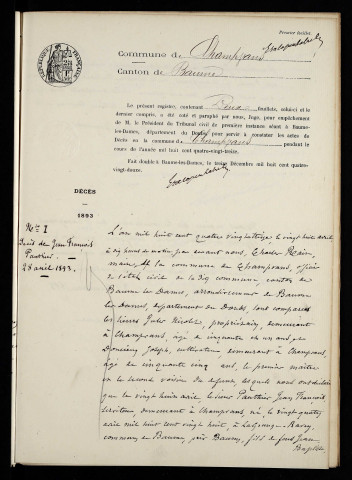 Premier feuillet.
Commune de Champvans
Canton de Baume
Le présent registre, contenant Deux feuillets, celui-ci et le
dernier compris, a été coté et paraphé par nous, Juge, pour empêchement
de M. le Président du Tribunal civil de première instance séant à Baume-
les-Dames, département du Doubs, pour servir à constater les actes de
Décès en la commune de Champvans pendant le
cours de l'année mil huit cent quatre-vingt-treize.
Fait double à Baume-les-Dames, le treize Décembre mil huit cent quatre-
vingt-douze.
DÉCÈS
1893
N° 1
Décès de Jean François
Panthier
28 avril 1893.
L'an mil huit cent quatre vingt treize, le vingt huit avril
à dix heures du matin, par devant nous, Charles
maire, de la commune de Champvans, officier
de l'état civil de la dite commune, canton de
Baume les Dames, arrondissement de Baume
les Dames, département du Doubs, sont comparus
les sieurs Jules Nicolas, propriétaire, demeurant
à Champvans, âgé de cinquante et un ans, et
Joseph, cultivateur, demeurant à Champvans,
âgé de cinquante cinq ans, le premier
et le second voisin du défunt, lesquels nous ont déclaré
que le vingt huit avril, le sieur Panthier Jean François,
cultivateur, demeurant à Champvans, né, le vingt quatre
avril mil huit cent vingt huit, à Lagrange Ravey,
commune de Baume, près Baume, fils de feu Jean
Baptiste